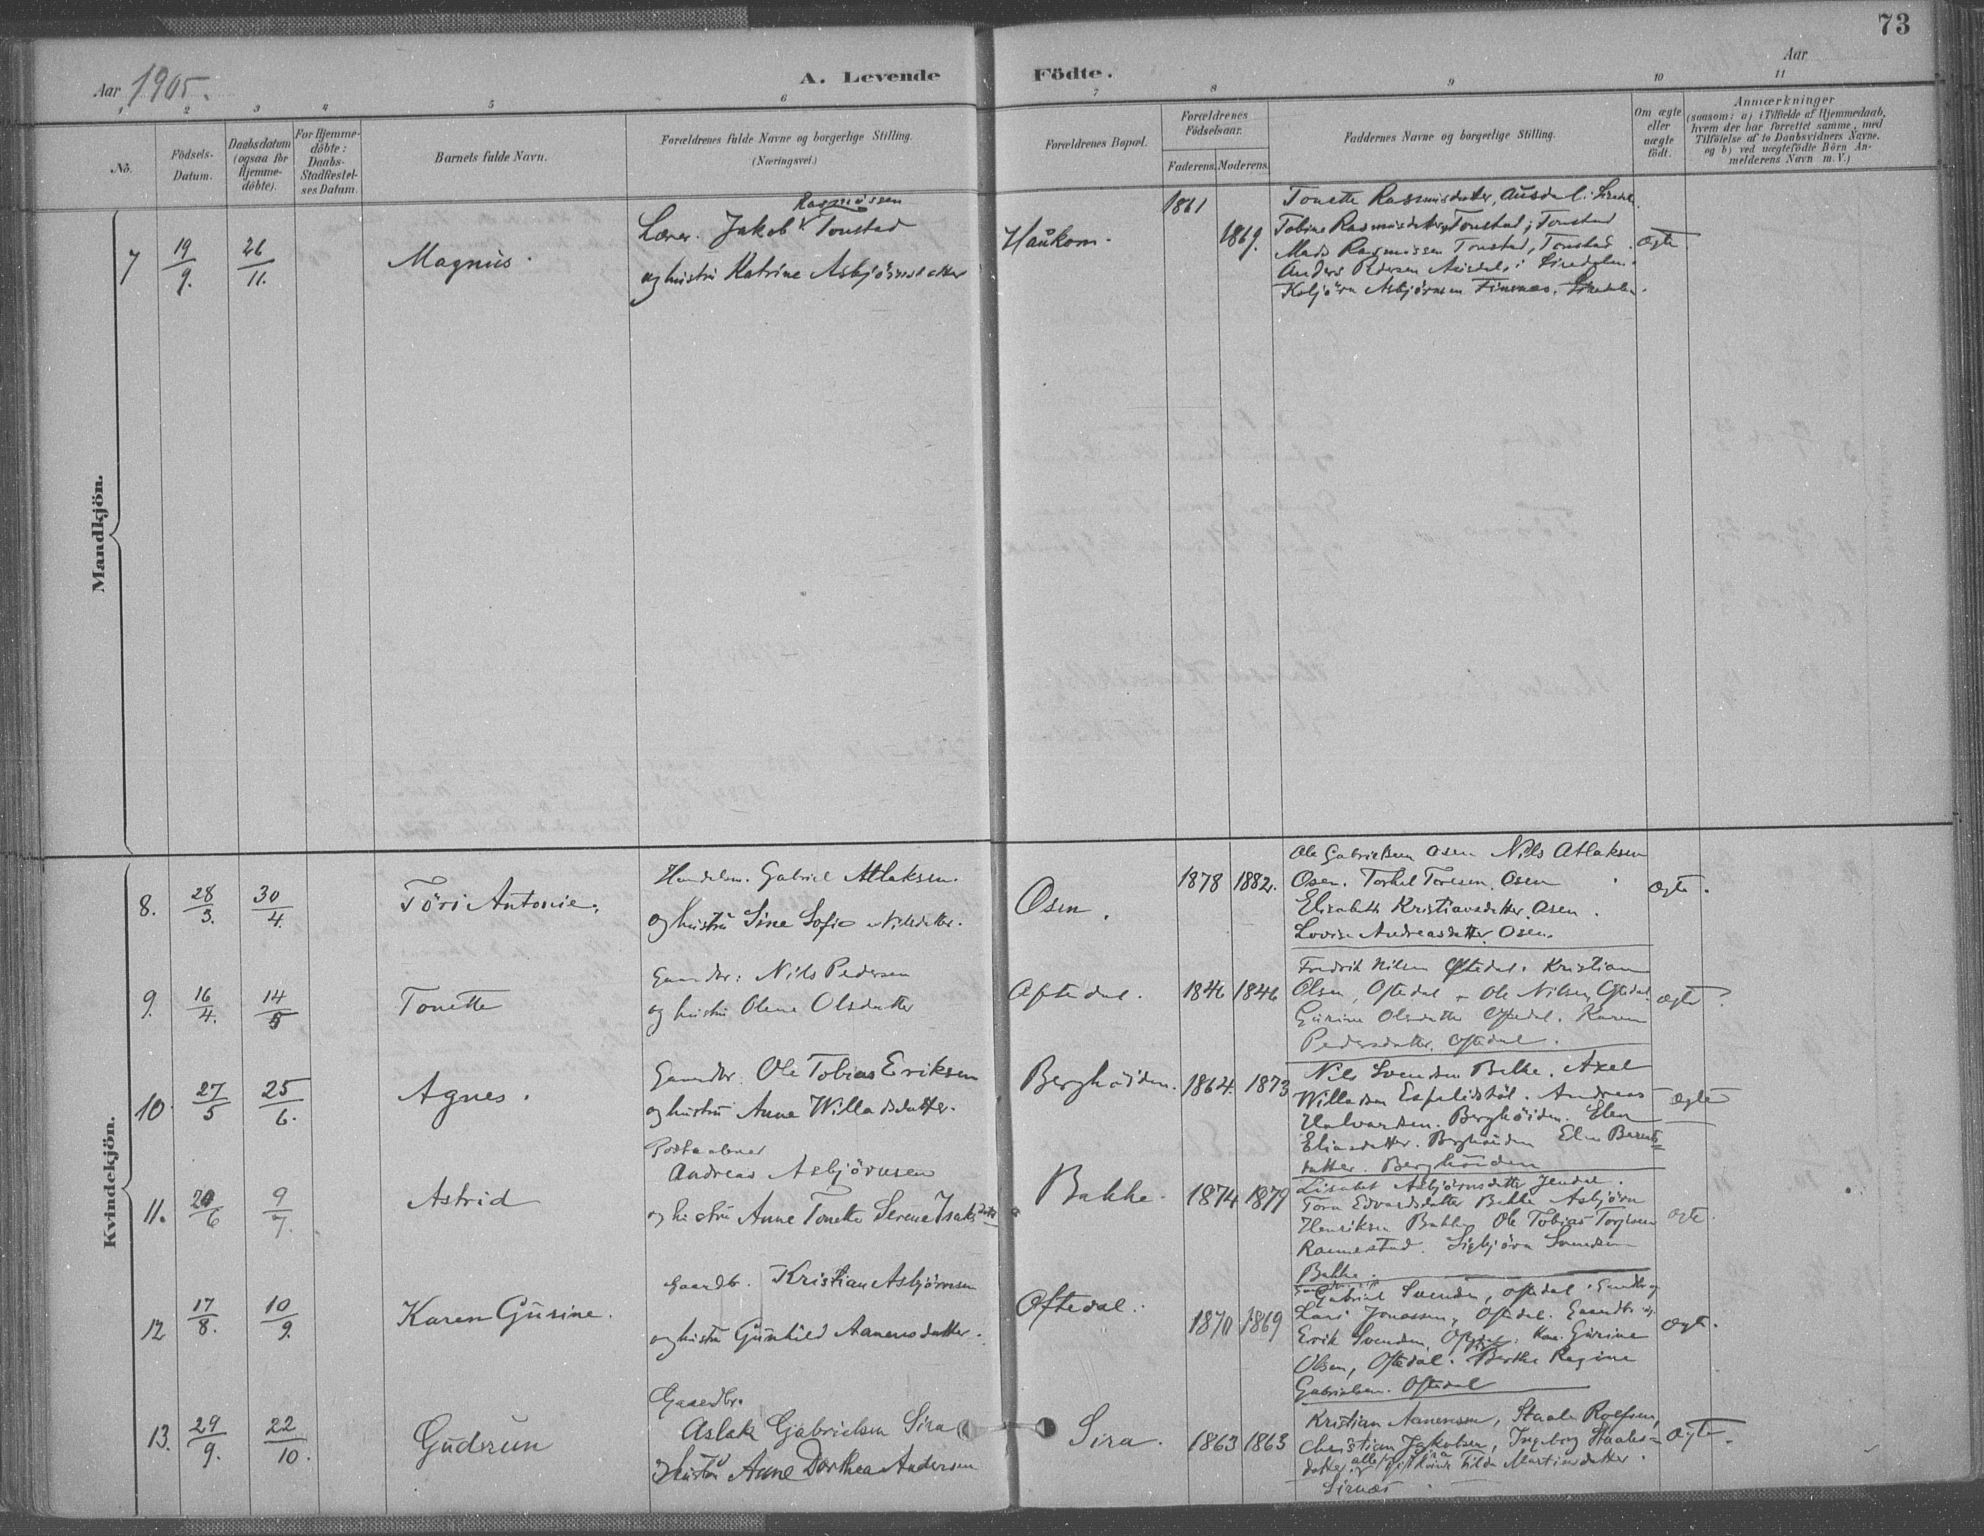 73
Aar 1905.
A. Levende Födte.
Aar
1 2 3 4 5 6 7 8 9 10 11
No.
Födsels-Datum.
Daabsdatum (ogsaa for Hjemme-döbte).
For Hjemme-döbte: Daabs-Stadfæstel-ses Datum.
Barnets fulde Navn.
Forældrenes fulde Navne og borgerlige Stilling.
(Næringsvei.)
Forældrenes Bopæl.
Forældrenes Födselsaar.
Faderens. Moderens.
Faddernes Navne og borgerlige Stilling.
Om ægte eller uægte födt.
Anmærkninger
(saasom: a) i Tilfælde af Hjemmedaab, hvem der har forrettet samme, med Tilföielse af to Daabsvidners Navne. og b) ved uægtefödte Börn Anmelderens Navn m. V.)
Mandkjön.
7 19/9. 26/11. Magnus.
Rasmussen
Lærer. Jakob Tonstad
og hustru Katrine Asbjørnsdatter
Haukom.
1861
1869.
Tonette Rasmusdatter, Ausdal i Siredal.
Tobine Rasmusdatter Tonstad, Tonstad
Mads Rasmussen Tonstad, Tonstad
Anders Pedersen Ausdal i Siredalen.
Kolbjörn Asbjørnsen Finsnes, Siredalen.
ægte
Kvindekjön.
8. 28/3. 30/4. Töri Antonie.
Handelsm. Gabriel Atlaksen.
og hustru Sine Sofie Nilsdatter.
Osen.
1878 1882.
Ole Gabrielsen Osen Nils Atlaksen
Osen. Torkel Toresen. Osen
Elisabeth Kristiansdatter. Osen.
Lovise Andreasdatter. Osen.
ægte.
9. 16/4. 14/5 Tonette
Gaardbr: Nils Pedersen
og hustru Olene Olsdatter
Oftedal.
1846 1846
Fredrik Nilsen Oftedal. Kristian
Olsen, Oftedal - Ole Nilsen, Oftedal.
Gurine Olsdatter Oftedal. Karen
Pedersdatter. Oftedal.
ægte
10. 27/5 25/6. Agnes.
Gaardbr. Ole Tobias Eriksen
og hustru Anne Willadsdatter.
Berghöiden.
1864. 1873
Nils Svendsen Bakke. Axel
Willadsen Espelidstøl. Andreas
Halvardsen. Berghöiden. Elen
Eliasdatter. Berghöiden Elen Berents
datter. Berghöiden
ægte
11. 20/6 9/7. Astrid
Postaabner
Andreas Asbjørnsen
og hustru Anne Tonette Serene Isaksdatter
Bakke.
1874 1879
Lisabet Asbjørnsdatter Jendal.
Tora Edvardsdatter Bakke Asbjørn
Henriksen Bakke, Ole Tobias Torjesen
Rannestad. Sigbjörn Svendsen
Bakke.
ægte.
12 17/8. 10/9. Karen Gurine.
Gaardbr. Kristian Asbjørnsen
og hustru Gunhild Aanensdatter.
Oftedal.
1870 1869
Gabriel Svendsen, Oftedal. Gaardbr og
Lars Jonassen, Oftedal. Gaardbr og
Erik Svendsen, Oftedal. Kone Gurine
Olsen, Oftedal. Berthe Regine
Gabrielsen. Oftedal
ægte.
13. 29/9. 22/10. Gudrun
Gaardbr.
Aslak Gabrielsen Sira
Hustru Anne Dorthea Andersen
Sira.
1863 1863
Kristian Aanensen, Staale Rolfsen,
Christian Jakobsen, Ingeborg Staales-
datter, alle Sira, Hilda Martinsdatter.
Sirnæs
ægte.